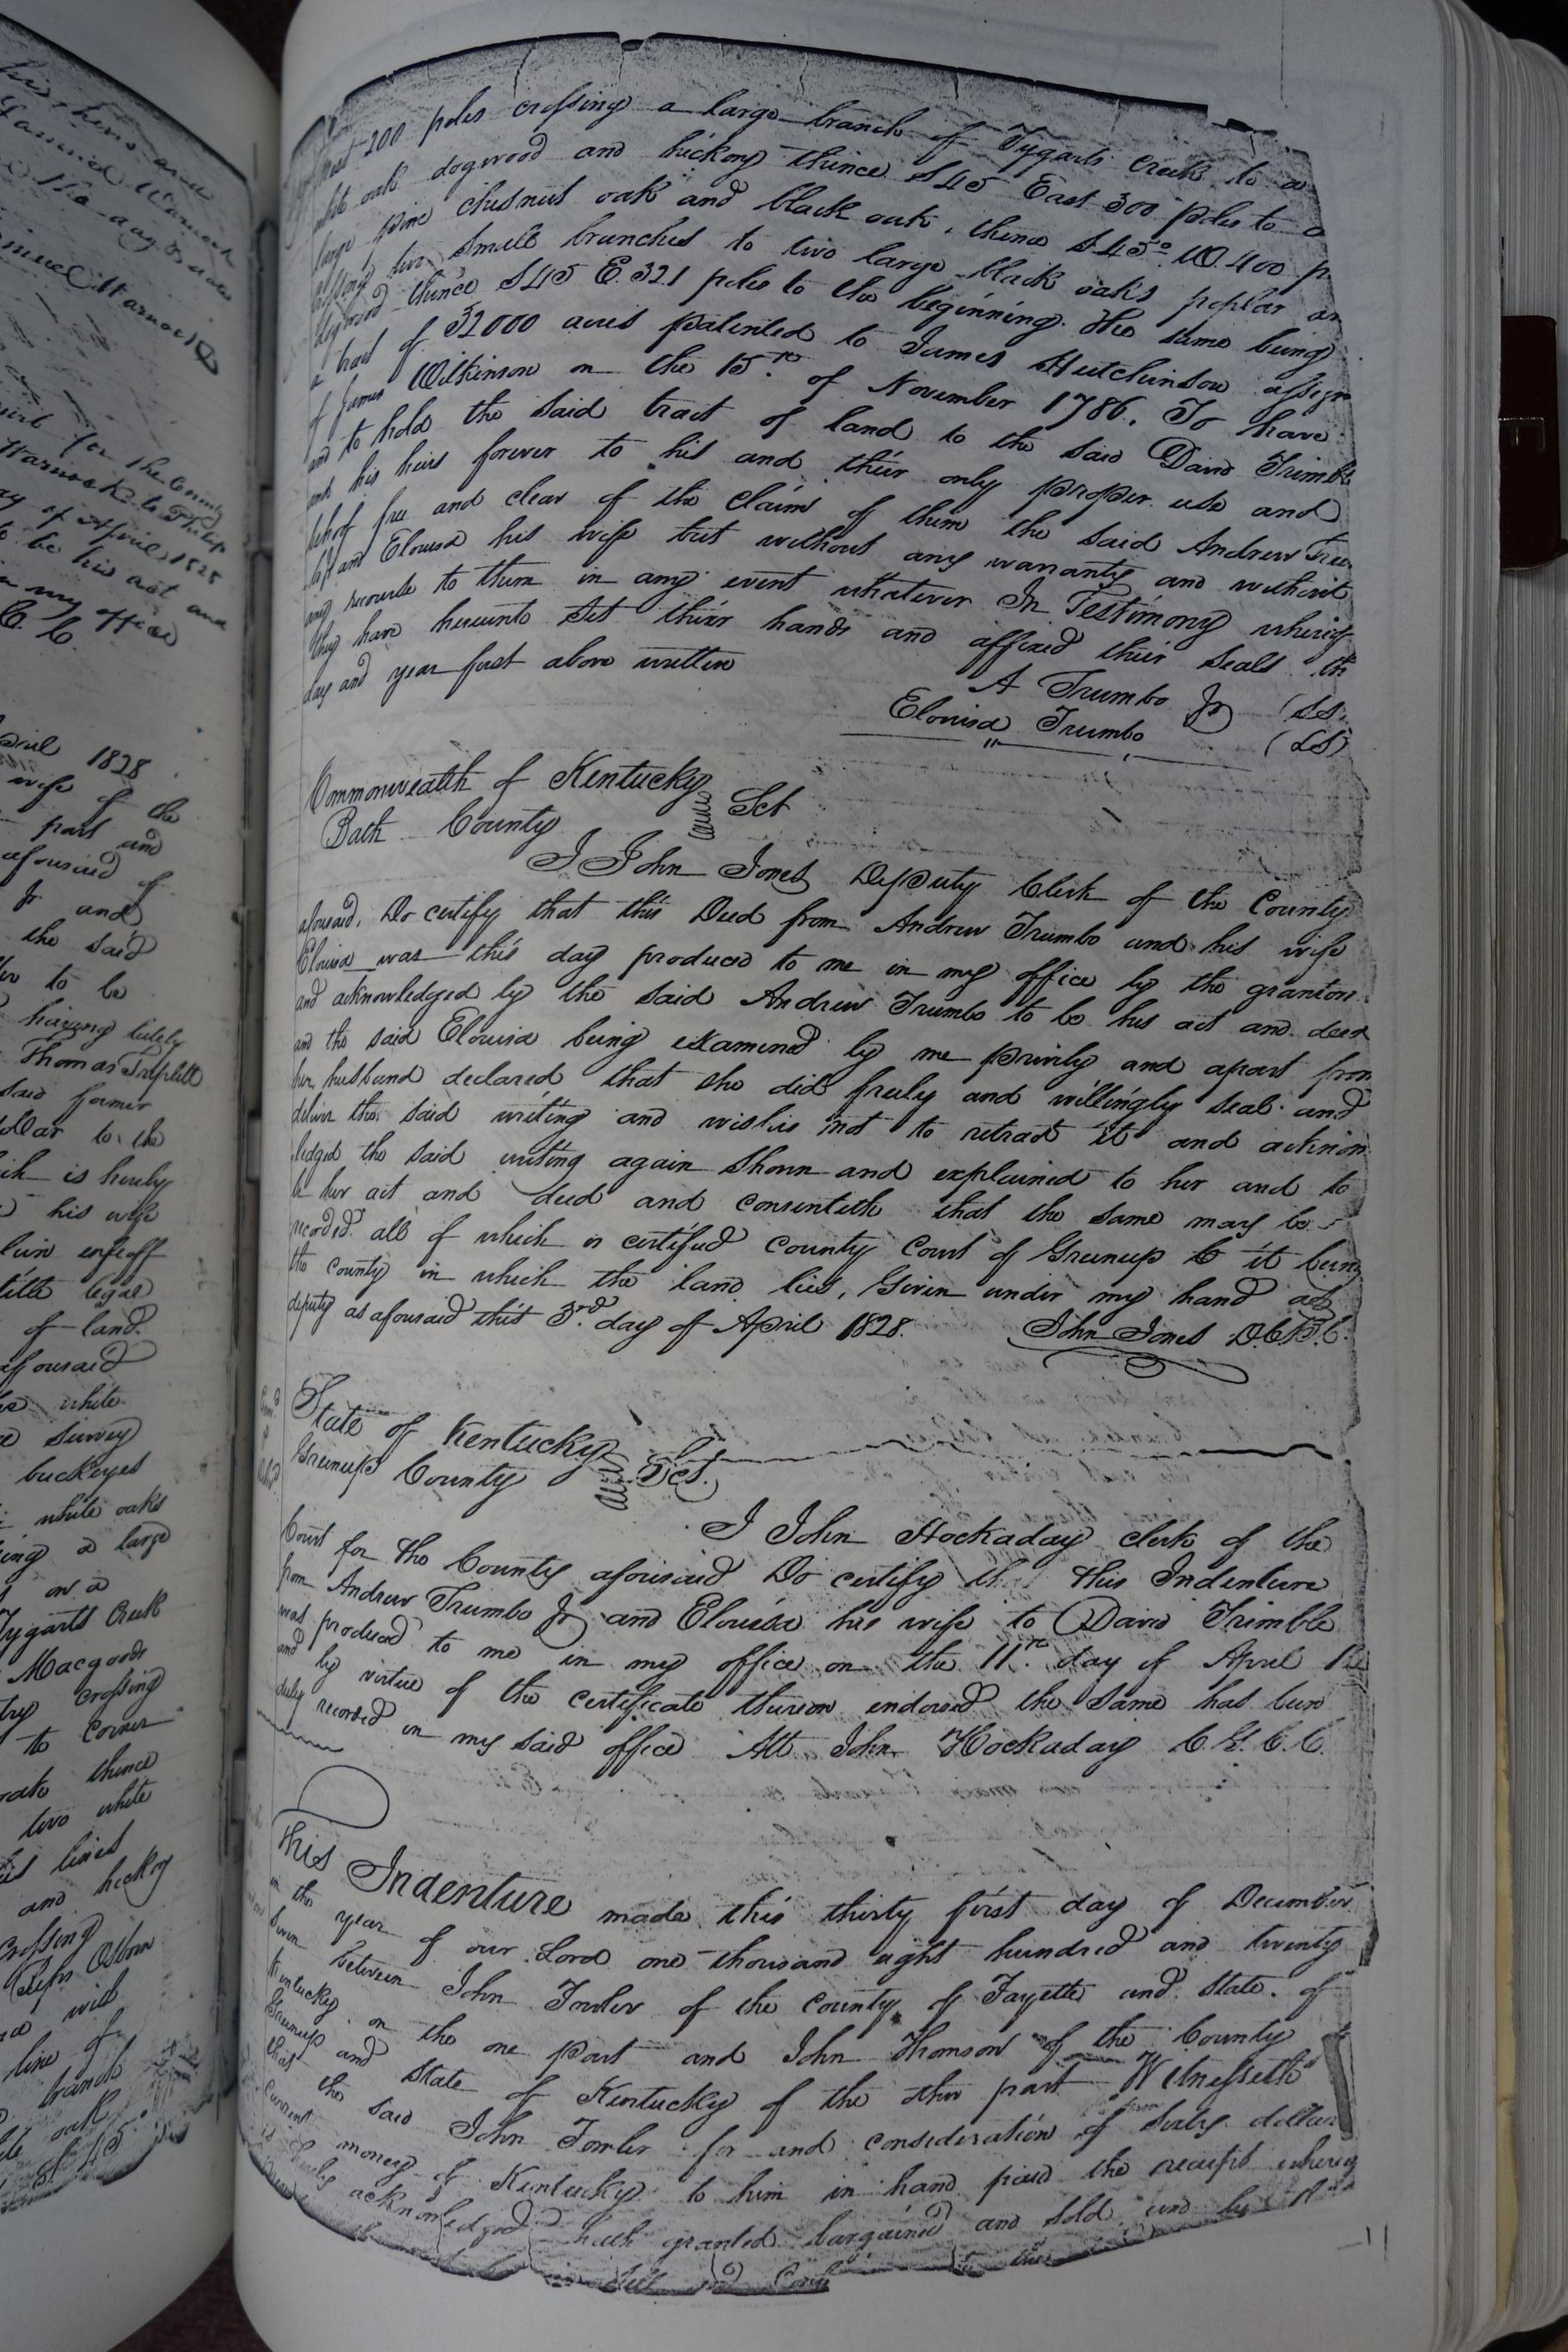 his heirs and
Samuel Warnock
the day & date
Samuel Warnock
for the County
Warnock to Philip
day of April 1828
to be his act and
in my office
C. C.
April 1828
wife of the
part and
aforesaid of
Jr and
the said
to be
having lately
Thomas Triplett
said former
dollar to the
which is hereby
his wife
enfeoff
title legal
of land
aforesaid
white
survey
buckeyes
white oaks
a large
on a
Tygarts Creek
Macgoods
crossing
to corner
thence
two white
lines
and hickory
crossing
Osborn
with
line of
branch
oak
S 45
West 200 poles crossing a large branch of Tygarts creek to a
white oak dogwood and hickory thence S 45 East 300 poles to a
large pine chesnut oak and black oak, thence S 45° W. 400 p
crossing two small branches to two large black oaks poplar an
dogwood thence S 45 E. 321 poles to the beginning. The same being
a part of 32000 acres patented to James Hutchinson assign
of James Wilkinson on the 15th of November 1786. To have
and to hold the said tract of land to the said David Trimble
and his heirs forever to his and their only proper use and
behoof free and clear of the claim of them the said Andrew Trum
and Elouisa his wife but without any warranty and without
any recourse to them in any event whatever In Testimony whereof
they have hereunto set their hands and affixed their seals the
day and year first above written
A Trumbo Jr (LS.
Elouisa Trumbo (LS)
Commonwealth of Kentucky
Bath County Sct
I John Jones Deputy Clerk of the County
aforesaid, Do certify that this Deed from Andrew Trumbo and his wife
Elouisa was this day produced to me in my office by the grantors
and acknowledged by the said Andrew Trumbo to be his act and deed
and the said Elouisa being examined by me privily and apart from
her husband declared that she did freely and willingly seal and
deliver the said writing and wishes not to retract it and acknow
ledged the said writing again shown and explained to her and to
be her act and deed and consenteth that the same may be
recorded all of which is certified county Court of Greenup it being
the county in which the land lies, Given under my hand as
deputy as aforesaid this 3rd day of April 1828. John Jones D.C.B.C.
State of Kentucky
Greenup County Sct.
I John Hockaday clerk of the
Court for the County aforesaid Do certify that this Indenture
from Andrew Trumbo Jr and Elouisa his wife to David Trimble
was produced to me in my office on the 11th day of April
and by virtue of the certificate thereon endorsed the same has been
duly recorded in my said office Att John Hockaday C. G. C. C.
This Indenture made this thirty first day of December
in the year of our Lord one thousand eight hundred and twenty
seven between John Fowler of the county of Fayette and state of
Kentucky on the one part and John Thomson of the County
Greenup and state of Kentucky of the other part Witnesseth
that the said John Fowler for and consideration of sixty dollars
current money of Kentucky to him in hand paid the receipt whereof
is hereby acknowledged hath granted bargained and sold and by